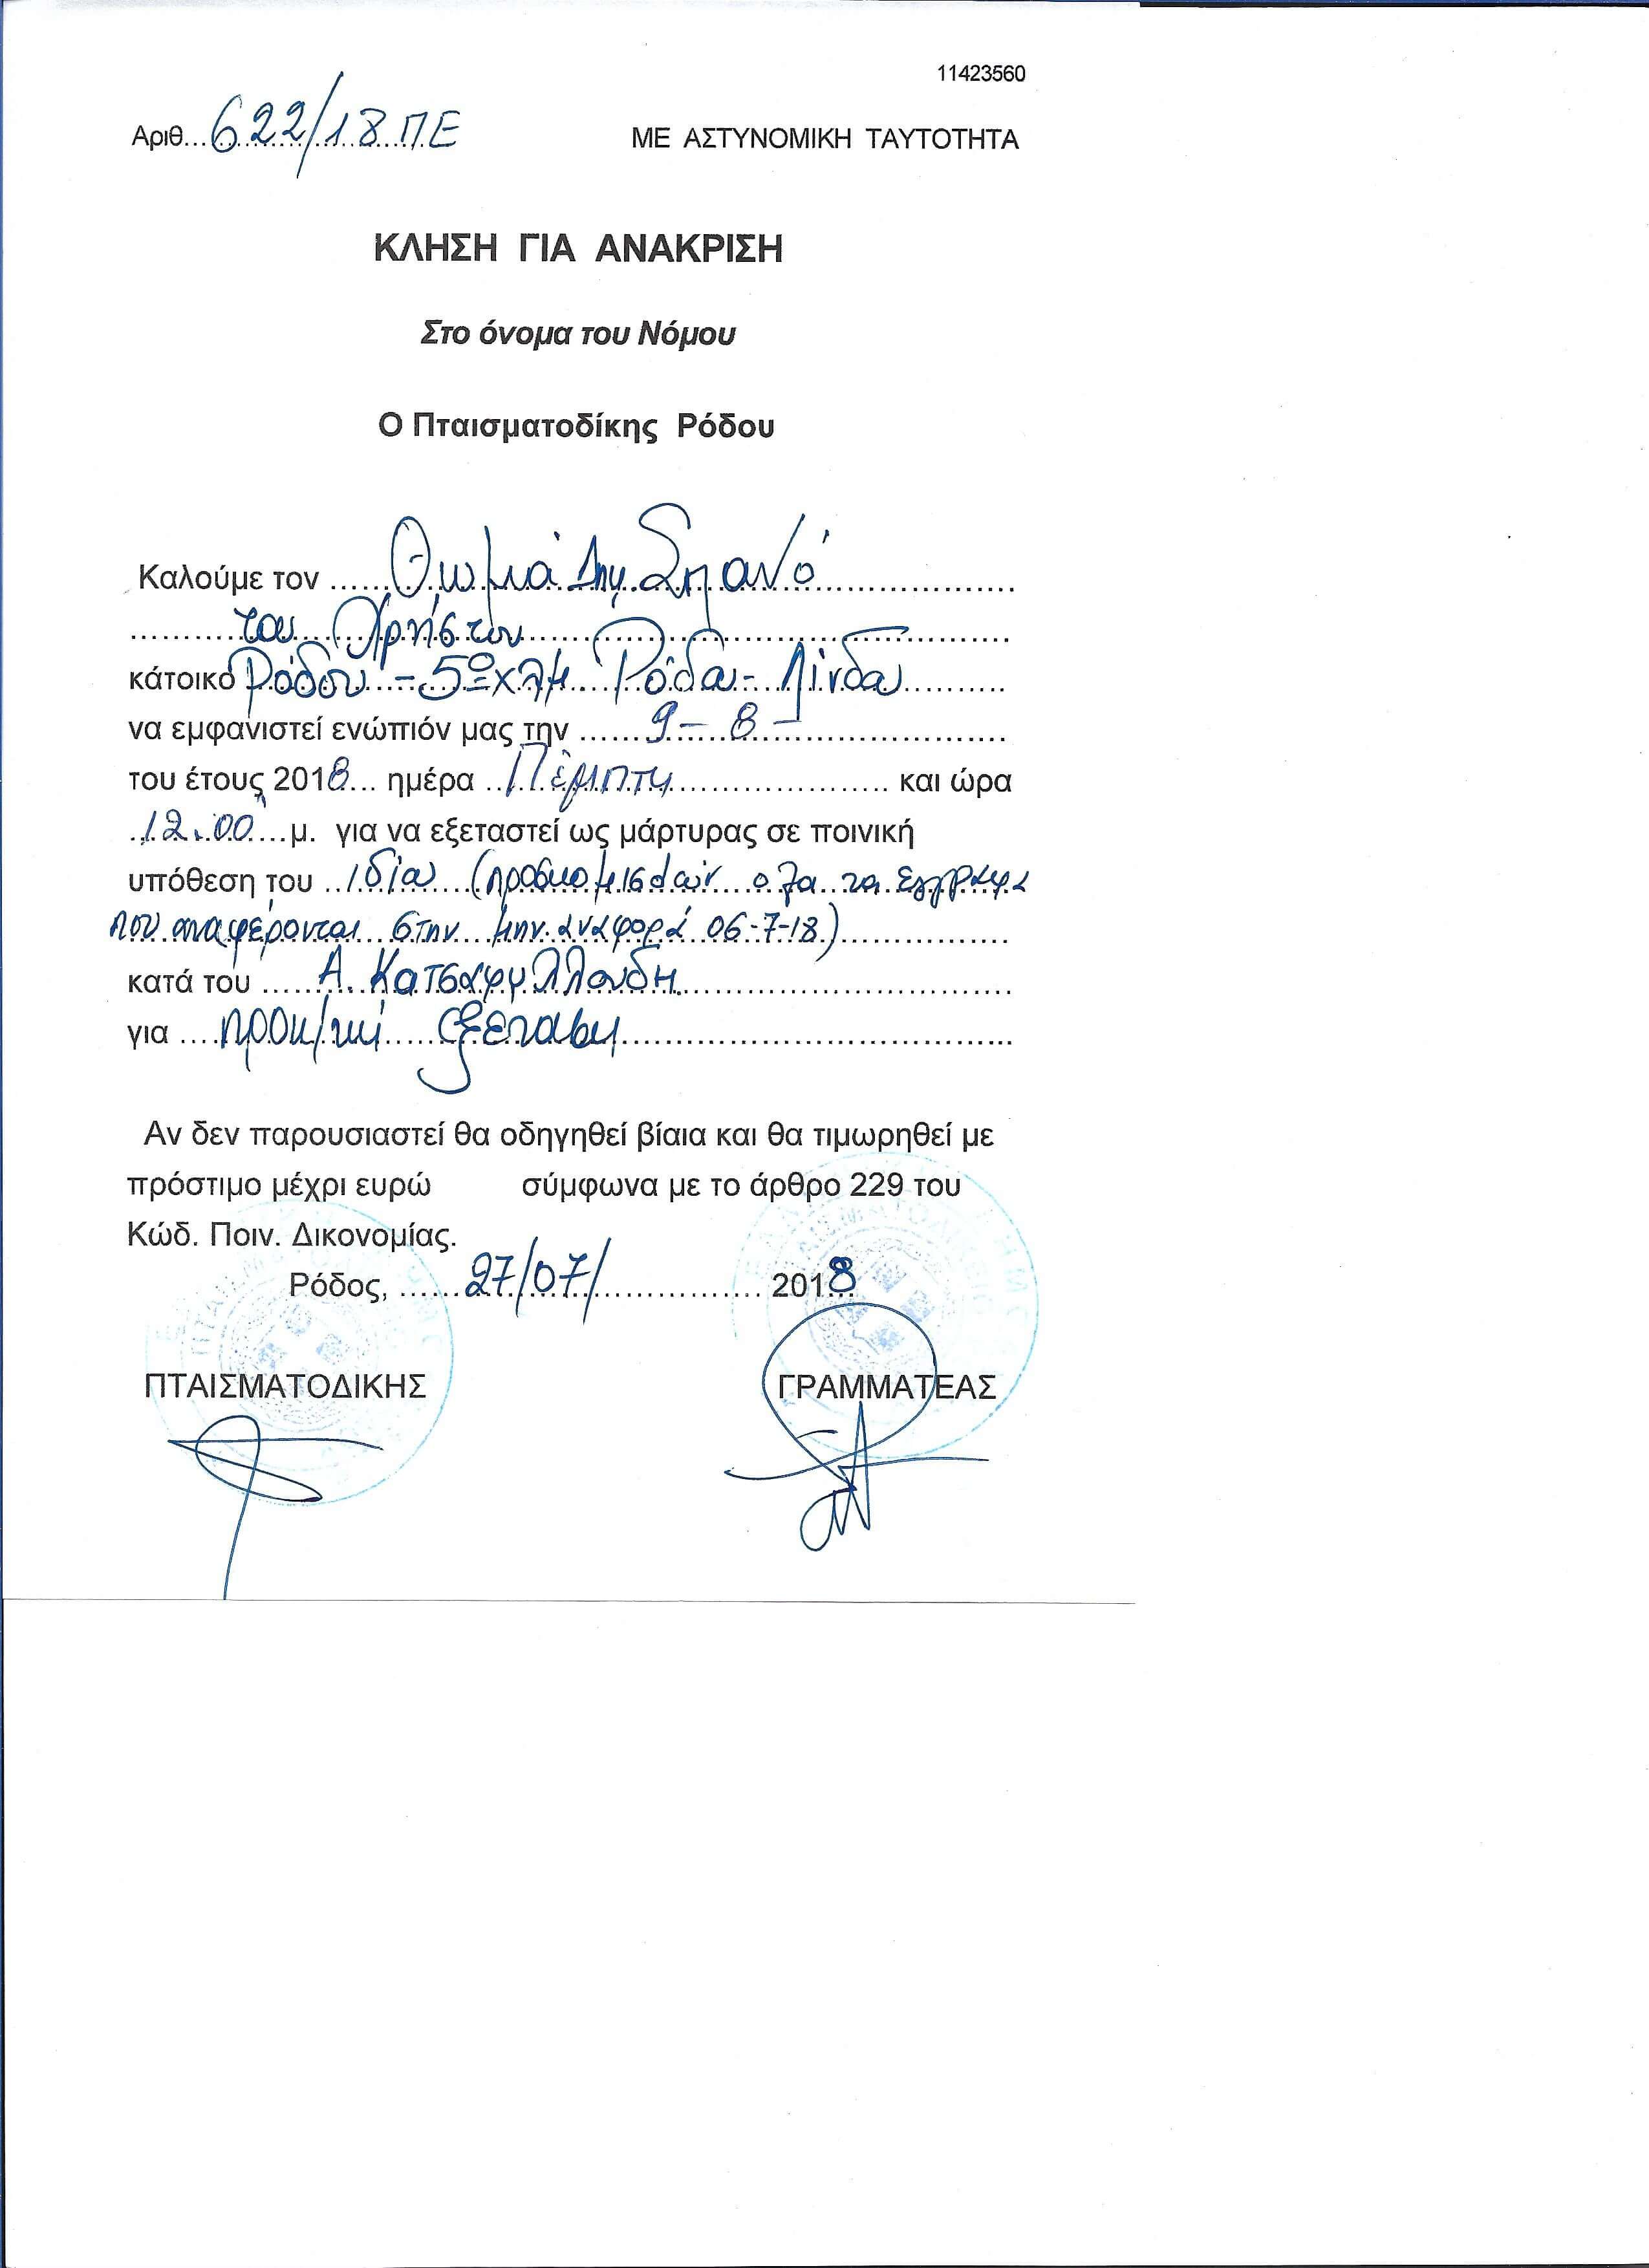 11423560
Αριθ...622/18 ΠΕ ΜΕ ΑΣΤΥΝΟΜΙΚΗ ΤΑΥΤΟΤΗΤΑ
ΚΛΗΣΗ ΓΙΑ ΑΝΑΚΡΙΣΗ
Στο όνομα του Νόμου
Ο Πταισματοδίκης Ρόδου
Καλούμε τον ...... Θωμιάδη Σπανό
του Χρήστου
κάτοικο Ρόδου - 5ο χλμ Ρόδου - Λίνδου
να εμφανιστεί ενώπιόν μας την ...... 9 - 8 -
του έτους 2018... ημέρα ..Πέμπτη.................... και ώρα
12.00 ....μ. για να εξεταστεί ως μάρτυρας σε ποινική
υπόθεση του .. ιδίου (προσκομίσθούν όλα τα έγγραφα
που αναφέρονται στην μην. αναφορά 06-7-18)
κατά του ...... Α. Κατσαφυλλούδη
για .... προκ/κή εξέταση
Αν δεν παρουσιαστεί θα οδηγηθεί βίαια και θα τιμωρηθεί με
πρόστιμο μέχρι ευρώ σύμφωνα με το άρθρο 229 του
Κώδ. Ποιν. Δικονομίας.
Ρόδος, ...... 27/07/ .................. 2018
ΠΤΑΙΣΜΑΤΟΔΙΚΗΣ ΓΡΑΜΜΑΤΕΑΣ